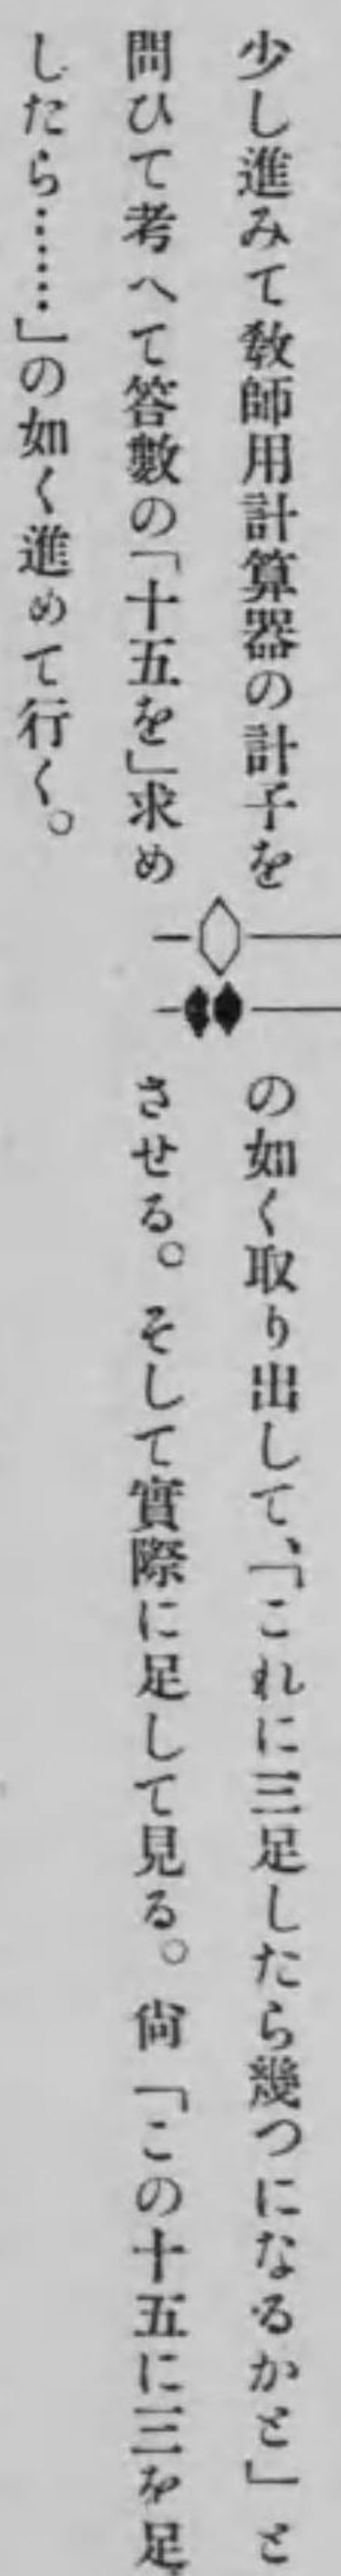 少し進みて教師用計算器の計子を
の如く取り出して、「これに三足したら幾つになるかと」と
問ひて考へて答數の「十五を」求め
させる。そして實際に足して見る。尙「この十五に三を足
したら……」の如く進めて行く。